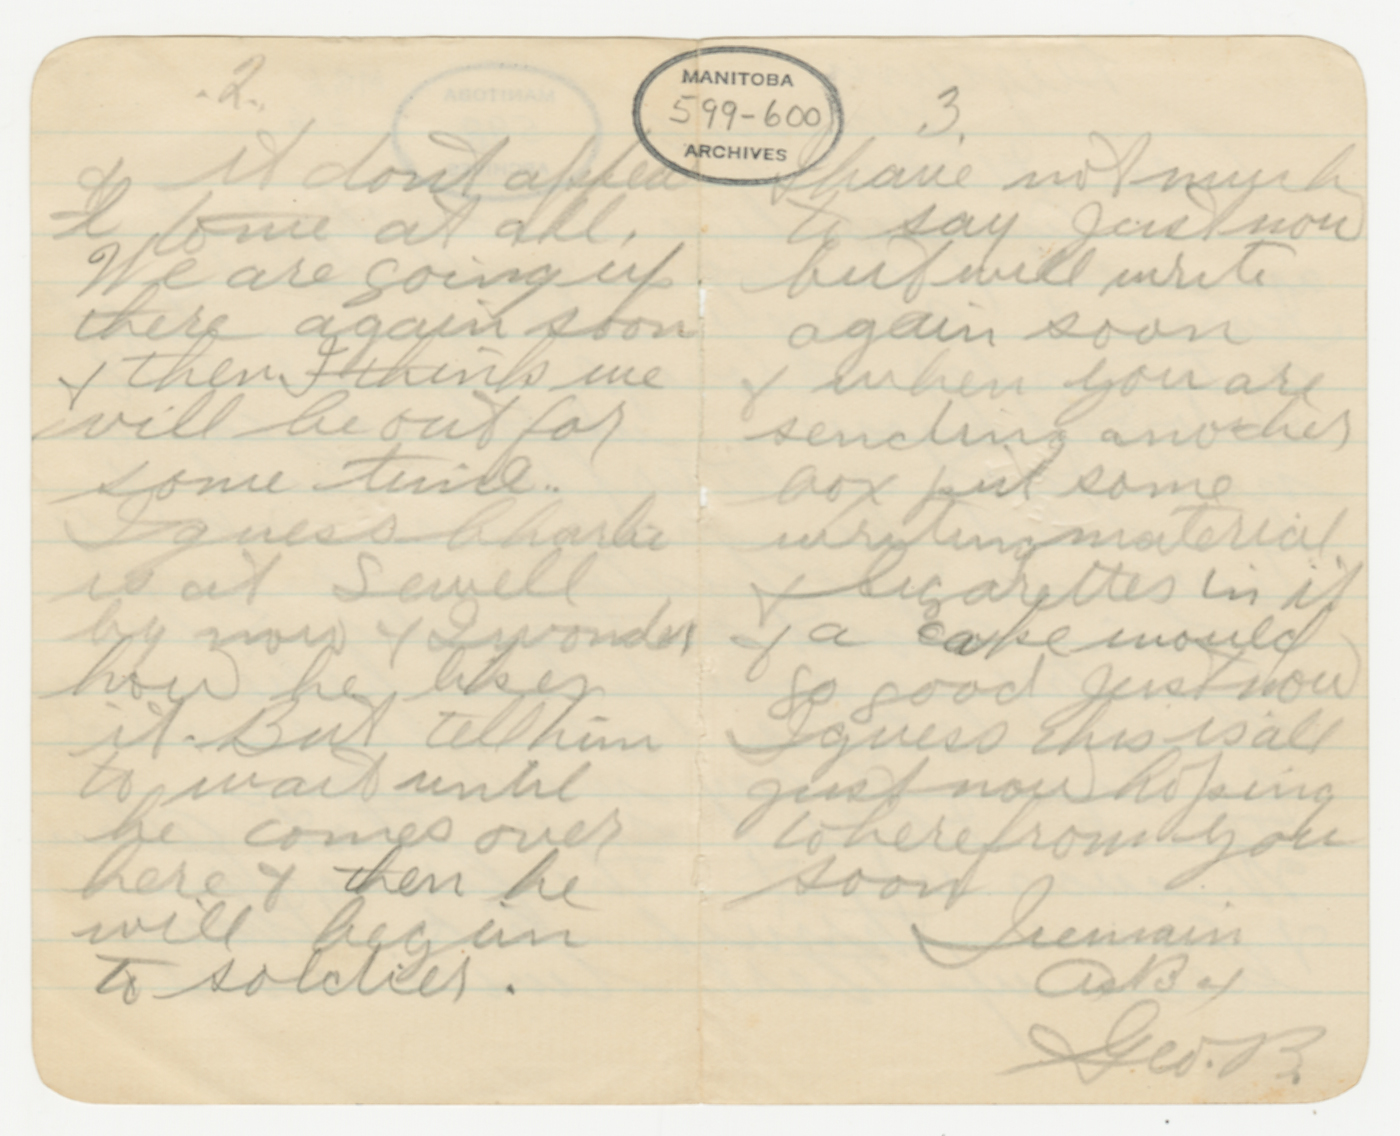 .2.
& it dont appeal
to me at all.
We are going up
there again soon
& then I think we
will be out for
some time..
I guess Charlie
is at Sewell
by now & I wonder
how he likes
it. But tell him
to wait until
he comes over
here & then he
will begin
to soldier.
MANITOBA
599-600
ARCHIVES
3.
I have not much
to say just now
but will write
again soon
& when you are
sending another
box put some
writing material
& Cigarettes in it
& a cake would
go good just now
I guess this is all
just now hoping
to here from you
soon
I remain
Geo. B.